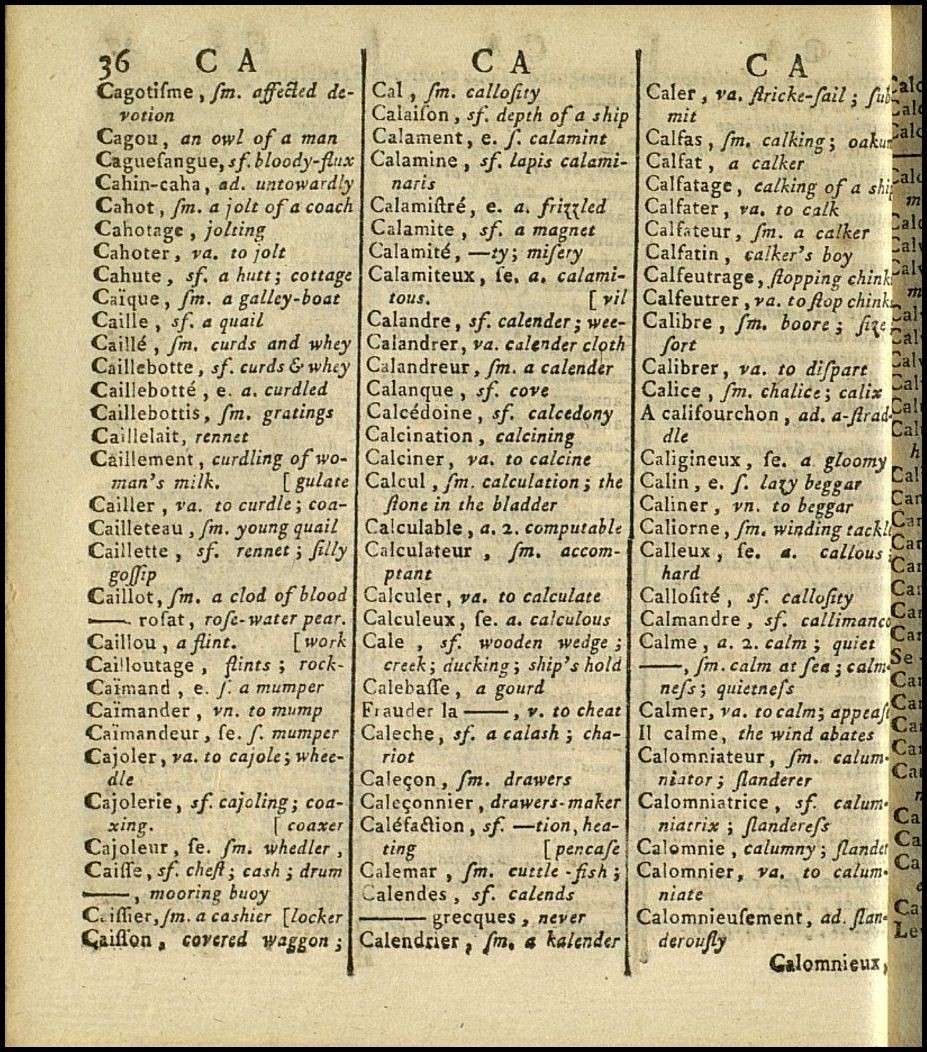 36 C A
Cagotiſme, ſm. affected de-
votion
Cagou, an owl of a man
Cagueſangue, sf. bloody-flux
Cahin-caha, ad. untowardly
Cahot, ſm. a jolt of a coach
Cahotage, jolting
Cahoter, va. to jolt
Cahute, sf. a hutt; cottage
Caïque, ſm. a galley-boat
Caille, sf. a quail
Caillé, ſm. curds and whey
Caillebotte, sf. curds & whey
Caillebotté, e. a. curdled
Caillebottis, ſm. gratings
Caillelait, rennet
Caillement, curdling of wo-
man's milk. [gulate
Cailler, va. to curdle; coa-
Cailleteau, ſm. young quail
Caillette, sf. rennet; ſilly
goſſip
Caillot, ſm. a clod of blood
—— roſat, roſe-water pear.
Caillou, a flint. [work
Cailloutage, flints; rock-
Caïmand, e. ſ. a mumper
Caïmander, vn. to mump
Caïmandeur, ſe. ſ. mumper
Cajoler, va. to cajole; whee-
dle
Cajolerie, sf. cajoling; coa-
xing. [coaxer
Cajoleur, ſe. ſm. whedler,
Caiſſe, sf. cheſt; cash; drum
——, mooring buoy
Caiſſier, ſm. a cashier [locker
Caiſſon, covered waggon;
C A
Cal, ſm. calloſity
Calaiſon, sf. depth of a ship
Calament, e. ſ. calamint
Calamine, sf. lapis calami-
naris
Calamiſtré, e. a. frizzled
Calamite, sf. a magnet
Calamité, —ty; miſery
Calamiteux, ſe. a. calami-
tous. [vil
Calandre, sf. calender; wee-
Calandrer, va. calender cloth
Calandreur, ſm. a calender
Calanque, sf. cove
Calcédoine, sf. calcedony
Calcination, calcining
Calciner, va. to calcine
Calcul, ſm. calculation; the
ſtone in the bladder
Calculable, a. 2. computable
Calculateur, ſm. accom-
ptant
Calculer, va. to calculate
Calculeux, ſe. a. calculous
Cale, sf. wooden wedge;
creek; ducking; ship's hold
Calebaſſe, a gourd
Frauder la ——, v. to cheat
Caleche, sf. a calash; cha-
riot
Caleçon, ſm. drawers
Caleçonnier, drawers-maker
Caléfaction, sf. —tion, hea-
ting [pencaſe
Calemar, ſm. cuttle-fish;
Calendes, sf. calends
—— grecques, never
Calendrier, ſm. a kalender
C A
Caler, va. ſtricke-ſail; ſub
mit
Calfas, ſm. calking; oakum
Calfat, a calker
Calfatage, calking of a ship
Calfater, va. to calk
Calfateur, ſm. a calker
Calfatin, calker's boy
Calfeutrage, ſtopping chink
Calfeutrer, va. to ſtop chink
Calibre, ſm. boore; ſize
ſort
Calibrer, va. to diſpart
Calice, ſm. chalice; calix
A califourchon, ad. a-ſtrad-
dle
Caligineux, ſe. a gloomy
Calin, e. ſ. lazy beggar
Caliner, vn. to beggar
Caliorne, ſm. winding tackle
Calleux, ſe. a. callous;
hard
Calloſité, sf. calloſity
Calmandre, sf. callimanco
Calme, a. 2. calm; quiet
——, ſm. calm at ſea; calm-
neſs; quietneſs
Calmer, va. to calm; appeaſe
Il calme, the wind abates
Calomniateur, ſm. calum-
niator; ſlanderer
Calomniatrice, sf. calum-
niatrix; ſlandereſs
Calomnie, calumny; ſlander
Calomnier, va. to calum-
niate
Calomnieuſement, ad. ſlan-
derouſly
Calomnieux,